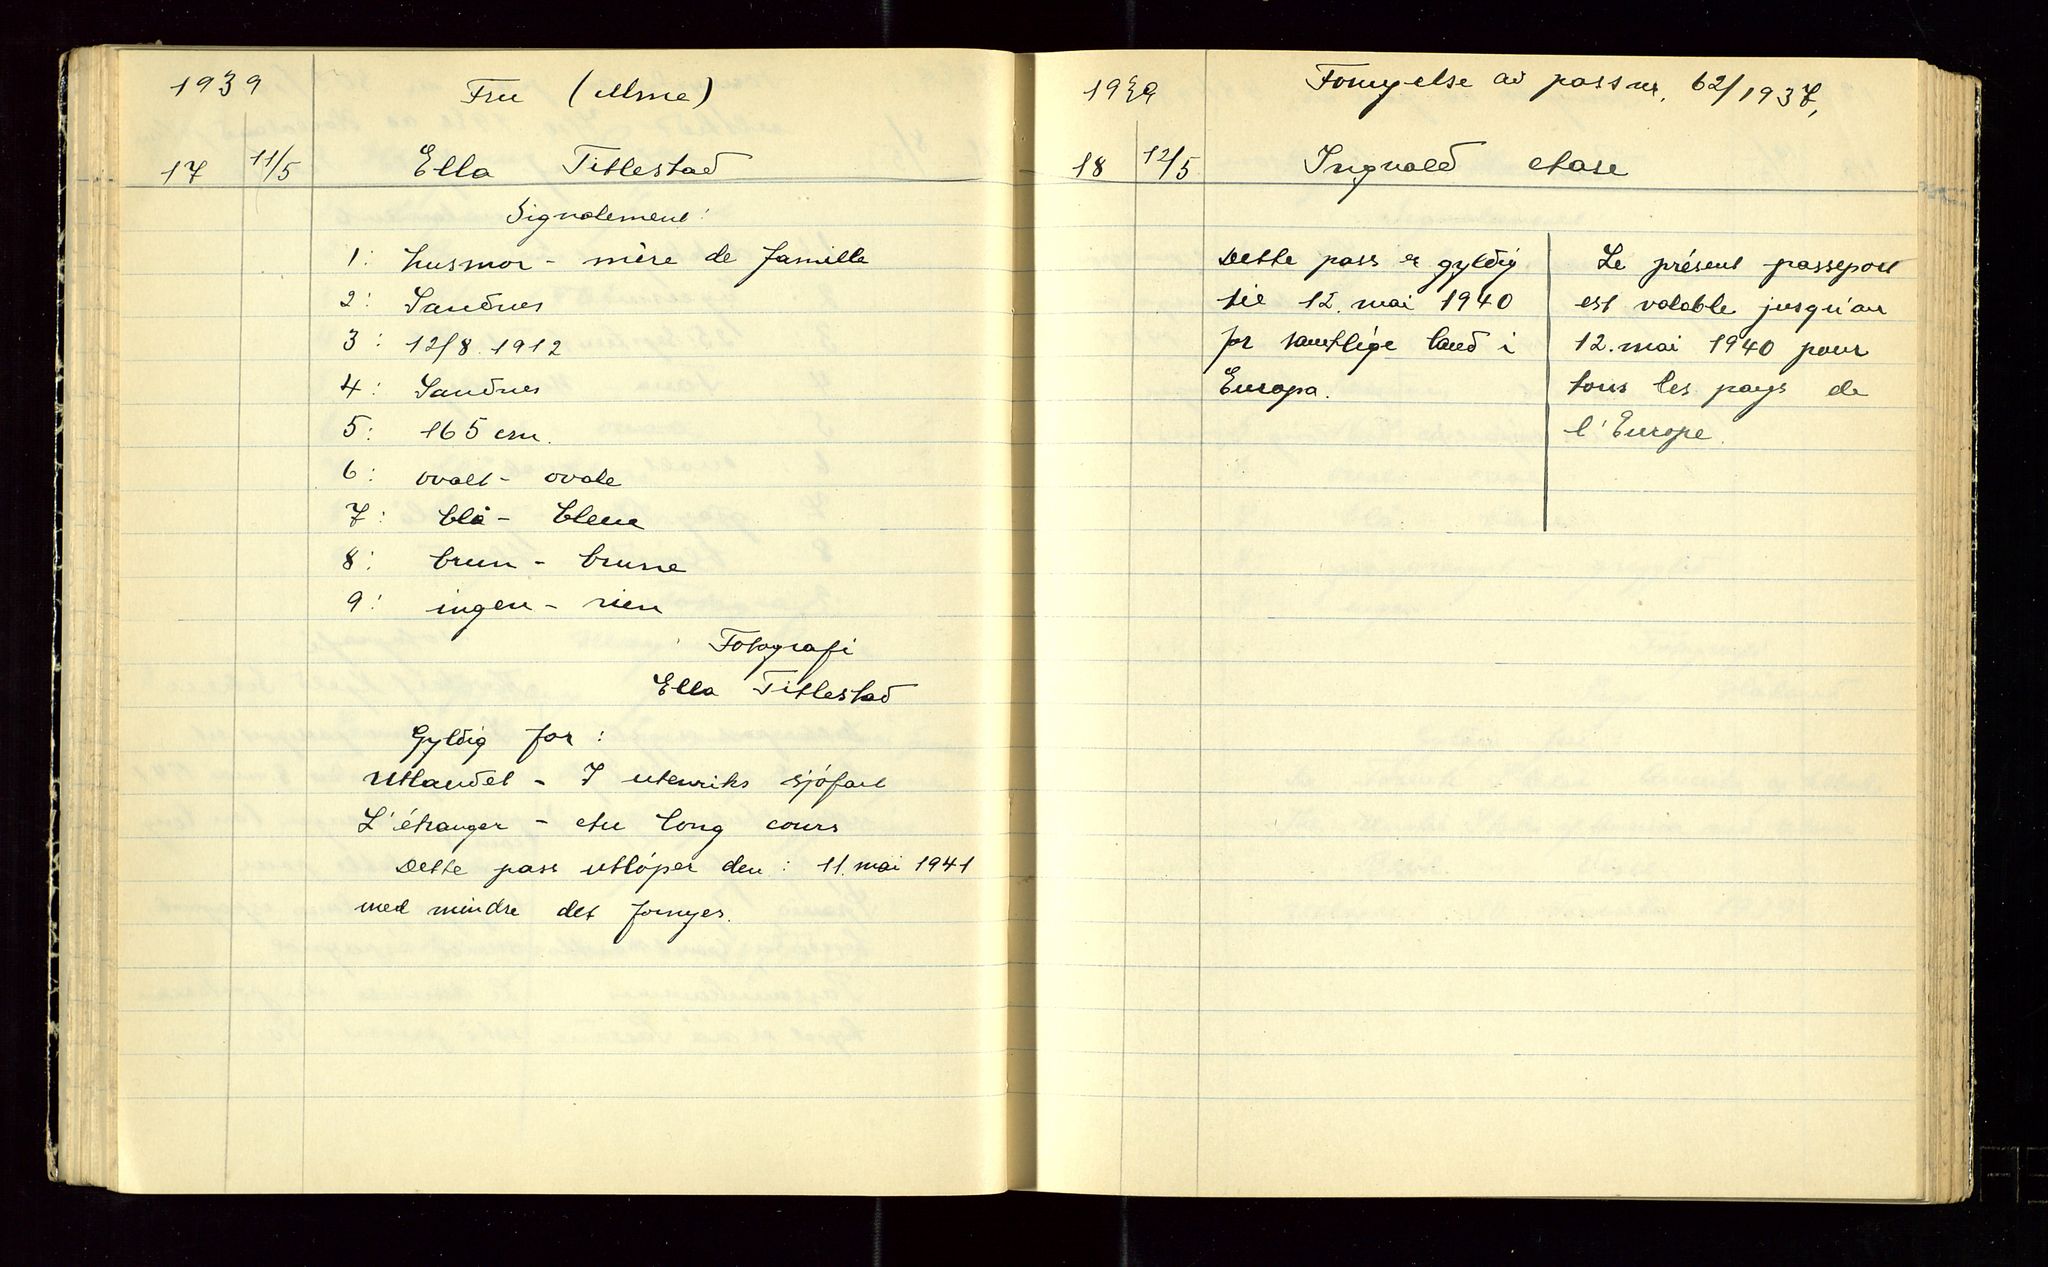 1939 Fru (Mme)
17 11/5 Ella Titlestad
Signalement:
1: husmor - mère de famille
2: Sandnes
3: 12/8.1912
4: Sandnes
5: 165 cm.
6: ovalt - ovale
7: blå - bleue
8: brun - brune
9: ingen - rien
Fotografi
Ella Titlestad
Gyldig for:
Utlandet - I utenriks sjöfart
L'étranger - Au long cours
Dette pass utlöper den: 11. mai 1941
med mindre det fornyes.
1939 Fornyelse av pass nr. 62/1937,
18 12/5 Ingvald Aase
Dette pass er gyldig
til 12. mai 1940
for samtlige land i
Europa.
Le présent passeport
est valable jusqu'au
12. mai 1940 pour
tous les pays de
l'Europe.